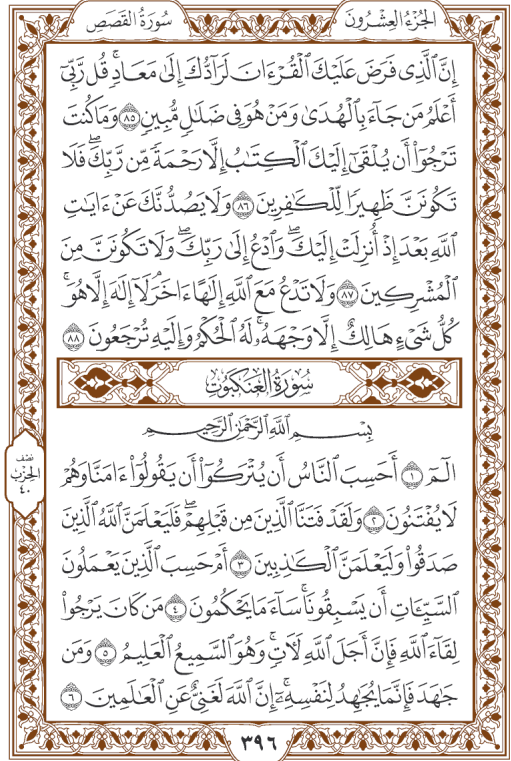 الجُزْءُ العِشْرُونَ
سُورَةُ القَصَصِ
إِنَّ ٱلَّذِى فَرَضَ عَلَيْكَ ٱلْقُرْءَانَ لَرَآدُّكَ إِلَىٰ مَعَادٍۚ قُل رَّبِّىٓ
أَعْلَمُ مَن جَآءَ بِٱلْهُدَىٰ وَمَنْ هُوَ فِى ضَلَٰلٍ مُّبِينٍ ٨٥ وَمَا كُنتَ
تَرْجُوٓا۟ أَن يُلْقَىٰٓ إِلَيْكَ ٱلْكِتَٰبُ إِلَّا رَحْمَةً مِّن رَّبِّكَۖ فَلَا
تَكُونَنَّ ظَهِيرًا لِّلْكَٰفِرِينَ ٨٦ وَلَا يَصُدُّنَّكَ عَنْ ءَايَٰتِ
ٱللَّهِ بَعْدَ إِذْ أُنزِلَتْ إِلَيْكَۖ وَٱدْعُ إِلَىٰ رَبِّكَۖ وَلَا تَكُونَنَّ مِنَ
ٱلْمُشْرِكِينَ ٨٧ وَلَا تَدْعُ مَعَ ٱللَّهِ إِلَٰهًا ءَاخَرَۘ لَآ إِلَٰهَ إِلَّا هُوَۚ
كُلُّ شَىْءٍ هَالِكٌ إِلَّا وَجْهَهُۥۚ لَهُ ٱلْحُكْمُ وَإِلَيْهِ تُرْجَعُونَ ٨٨
سُورَةُ العَنكَبُوتِ
بِسْمِ ٱللَّهِ ٱلرَّحْمَٰنِ ٱلرَّحِيمِ
الٓمٓ ١ أَحَسِبَ ٱلنَّاسُ أَن يُتْرَكُوٓا۟ أَن يَقُولُوٓا۟ ءَامَنَّا وَهُمْ
لَا يُفْتَنُونَ ٢ وَلَقَدْ فَتَنَّا ٱلَّذِينَ مِن قَبْلِهِمْۖ فَلَيَعْلَمَنَّ ٱللَّهُ ٱلَّذِينَ
صَدَقُوا۟ وَلَيَعْلَمَنَّ ٱلْكَٰذِبِينَ ٣ أَمْ حَسِبَ ٱلَّذِينَ يَعْمَلُونَ
ٱلسَّيِّـَٔاتِ أَن يَسْبِقُونَاۚ سَآءَ مَا يَحْكُمُونَ ٤ مَن كَانَ يَرْجُوا۟
لِقَآءَ ٱللَّهِ فَإِنَّ أَجَلَ ٱللَّهِ لَءَاتٍۚ وَهُوَ ٱلسَّمِيعُ ٱلْعَلِيمُ ٥ وَمَن
جَٰهَدَ فَإِنَّمَا يُجَٰهِدُ لِنَفْسِهِۦٓۚ إِنَّ ٱللَّهَ لَغَنِىٌّ عَنِ ٱلْعَٰلَمِينَ ٦
نصف
الحزب
٤٠
٣٩٦